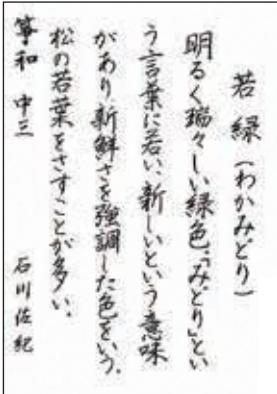 若緑（わかみどり）
明るく瑞々しい緑色。「みどり」とい
う言葉に若い、新しいという意味
があり新鮮さを強調した色をいう。
松の若葉をさすことが多い。
箏和 中三 石川佐紀